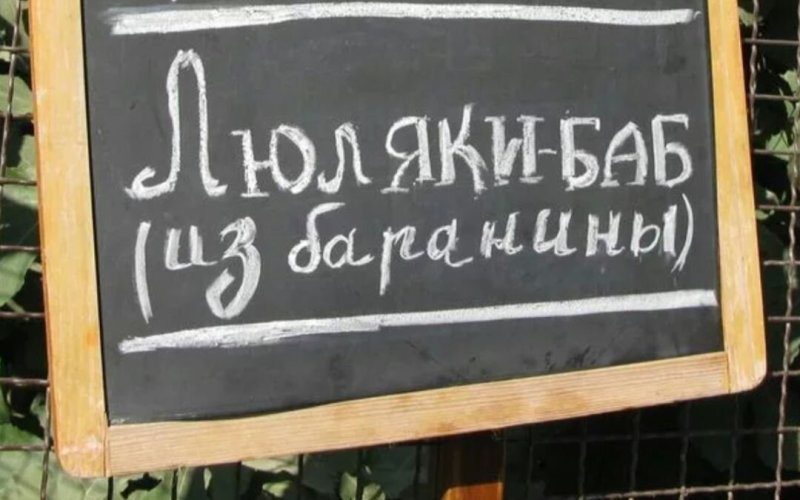 Люляки-БАБ
(из баранины)